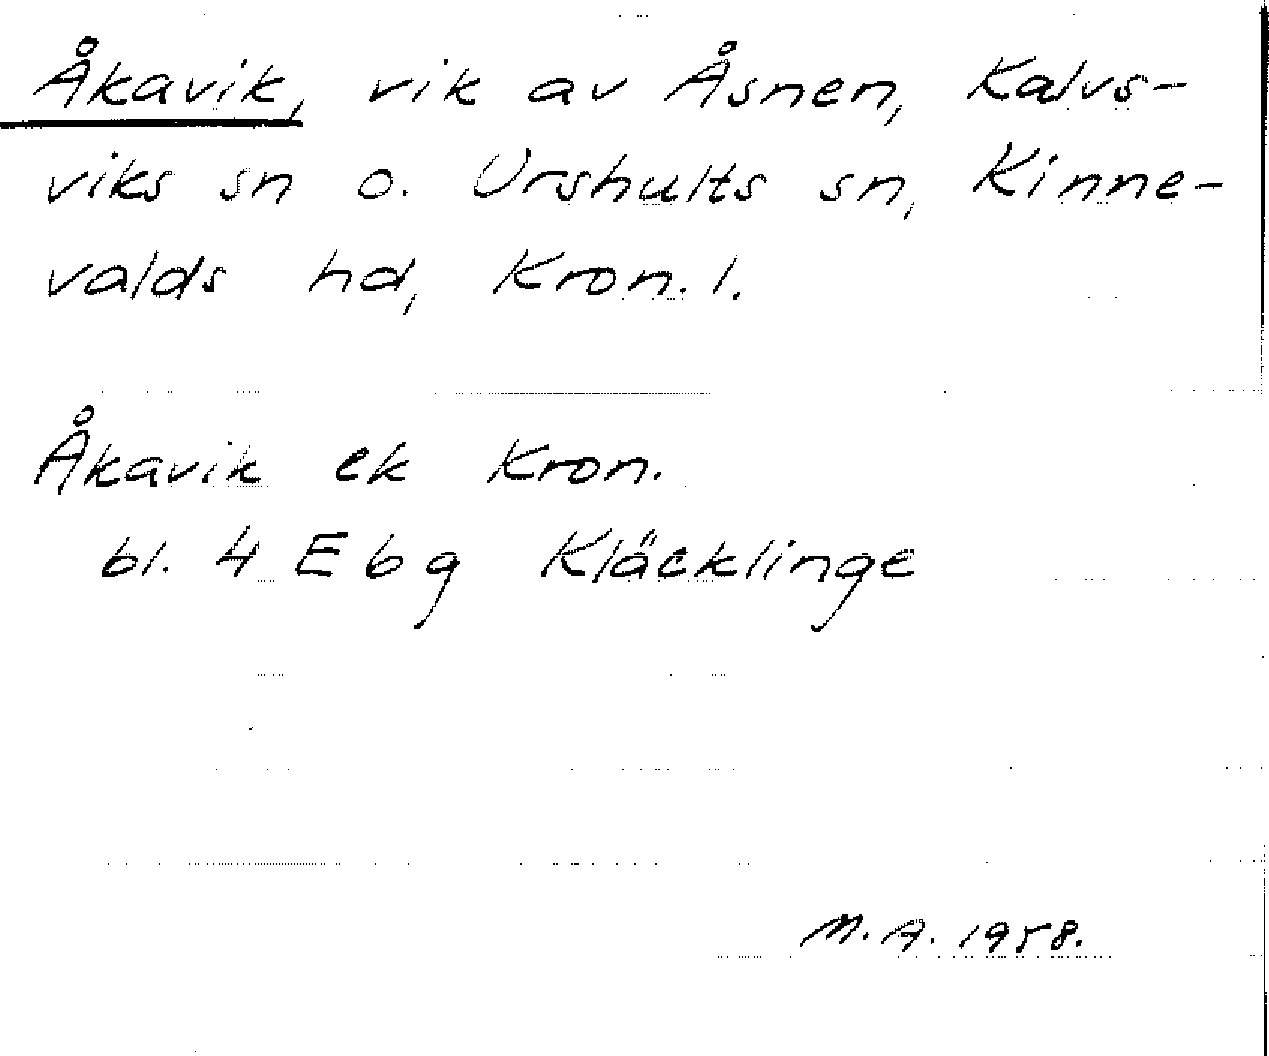 Åkavik, vik av Åsnen, Kalvs-
viks sn o. Urshults sn, Kinne-
valds hd, Kron. l.
Åkavik ek Kron.
bl. 4 E b g Kläcklinge
M. A. 1958.